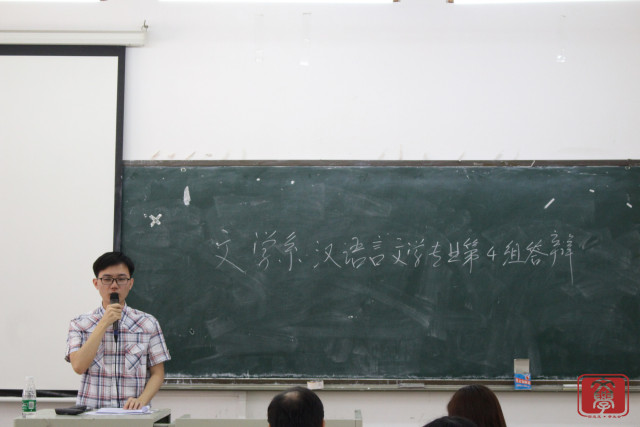 文学系汉语言文学专业第4组答辩